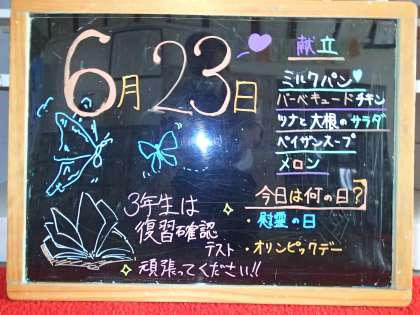 6月23日
献立
ミルクパン
バーベキュードチキン
ツナと大根のサラダ
ペイザンスープ
メロン
今日は何の日?
・慰霊の日
・オリンピックデー
3年生は
復習確認
テスト
頑張ってください!!